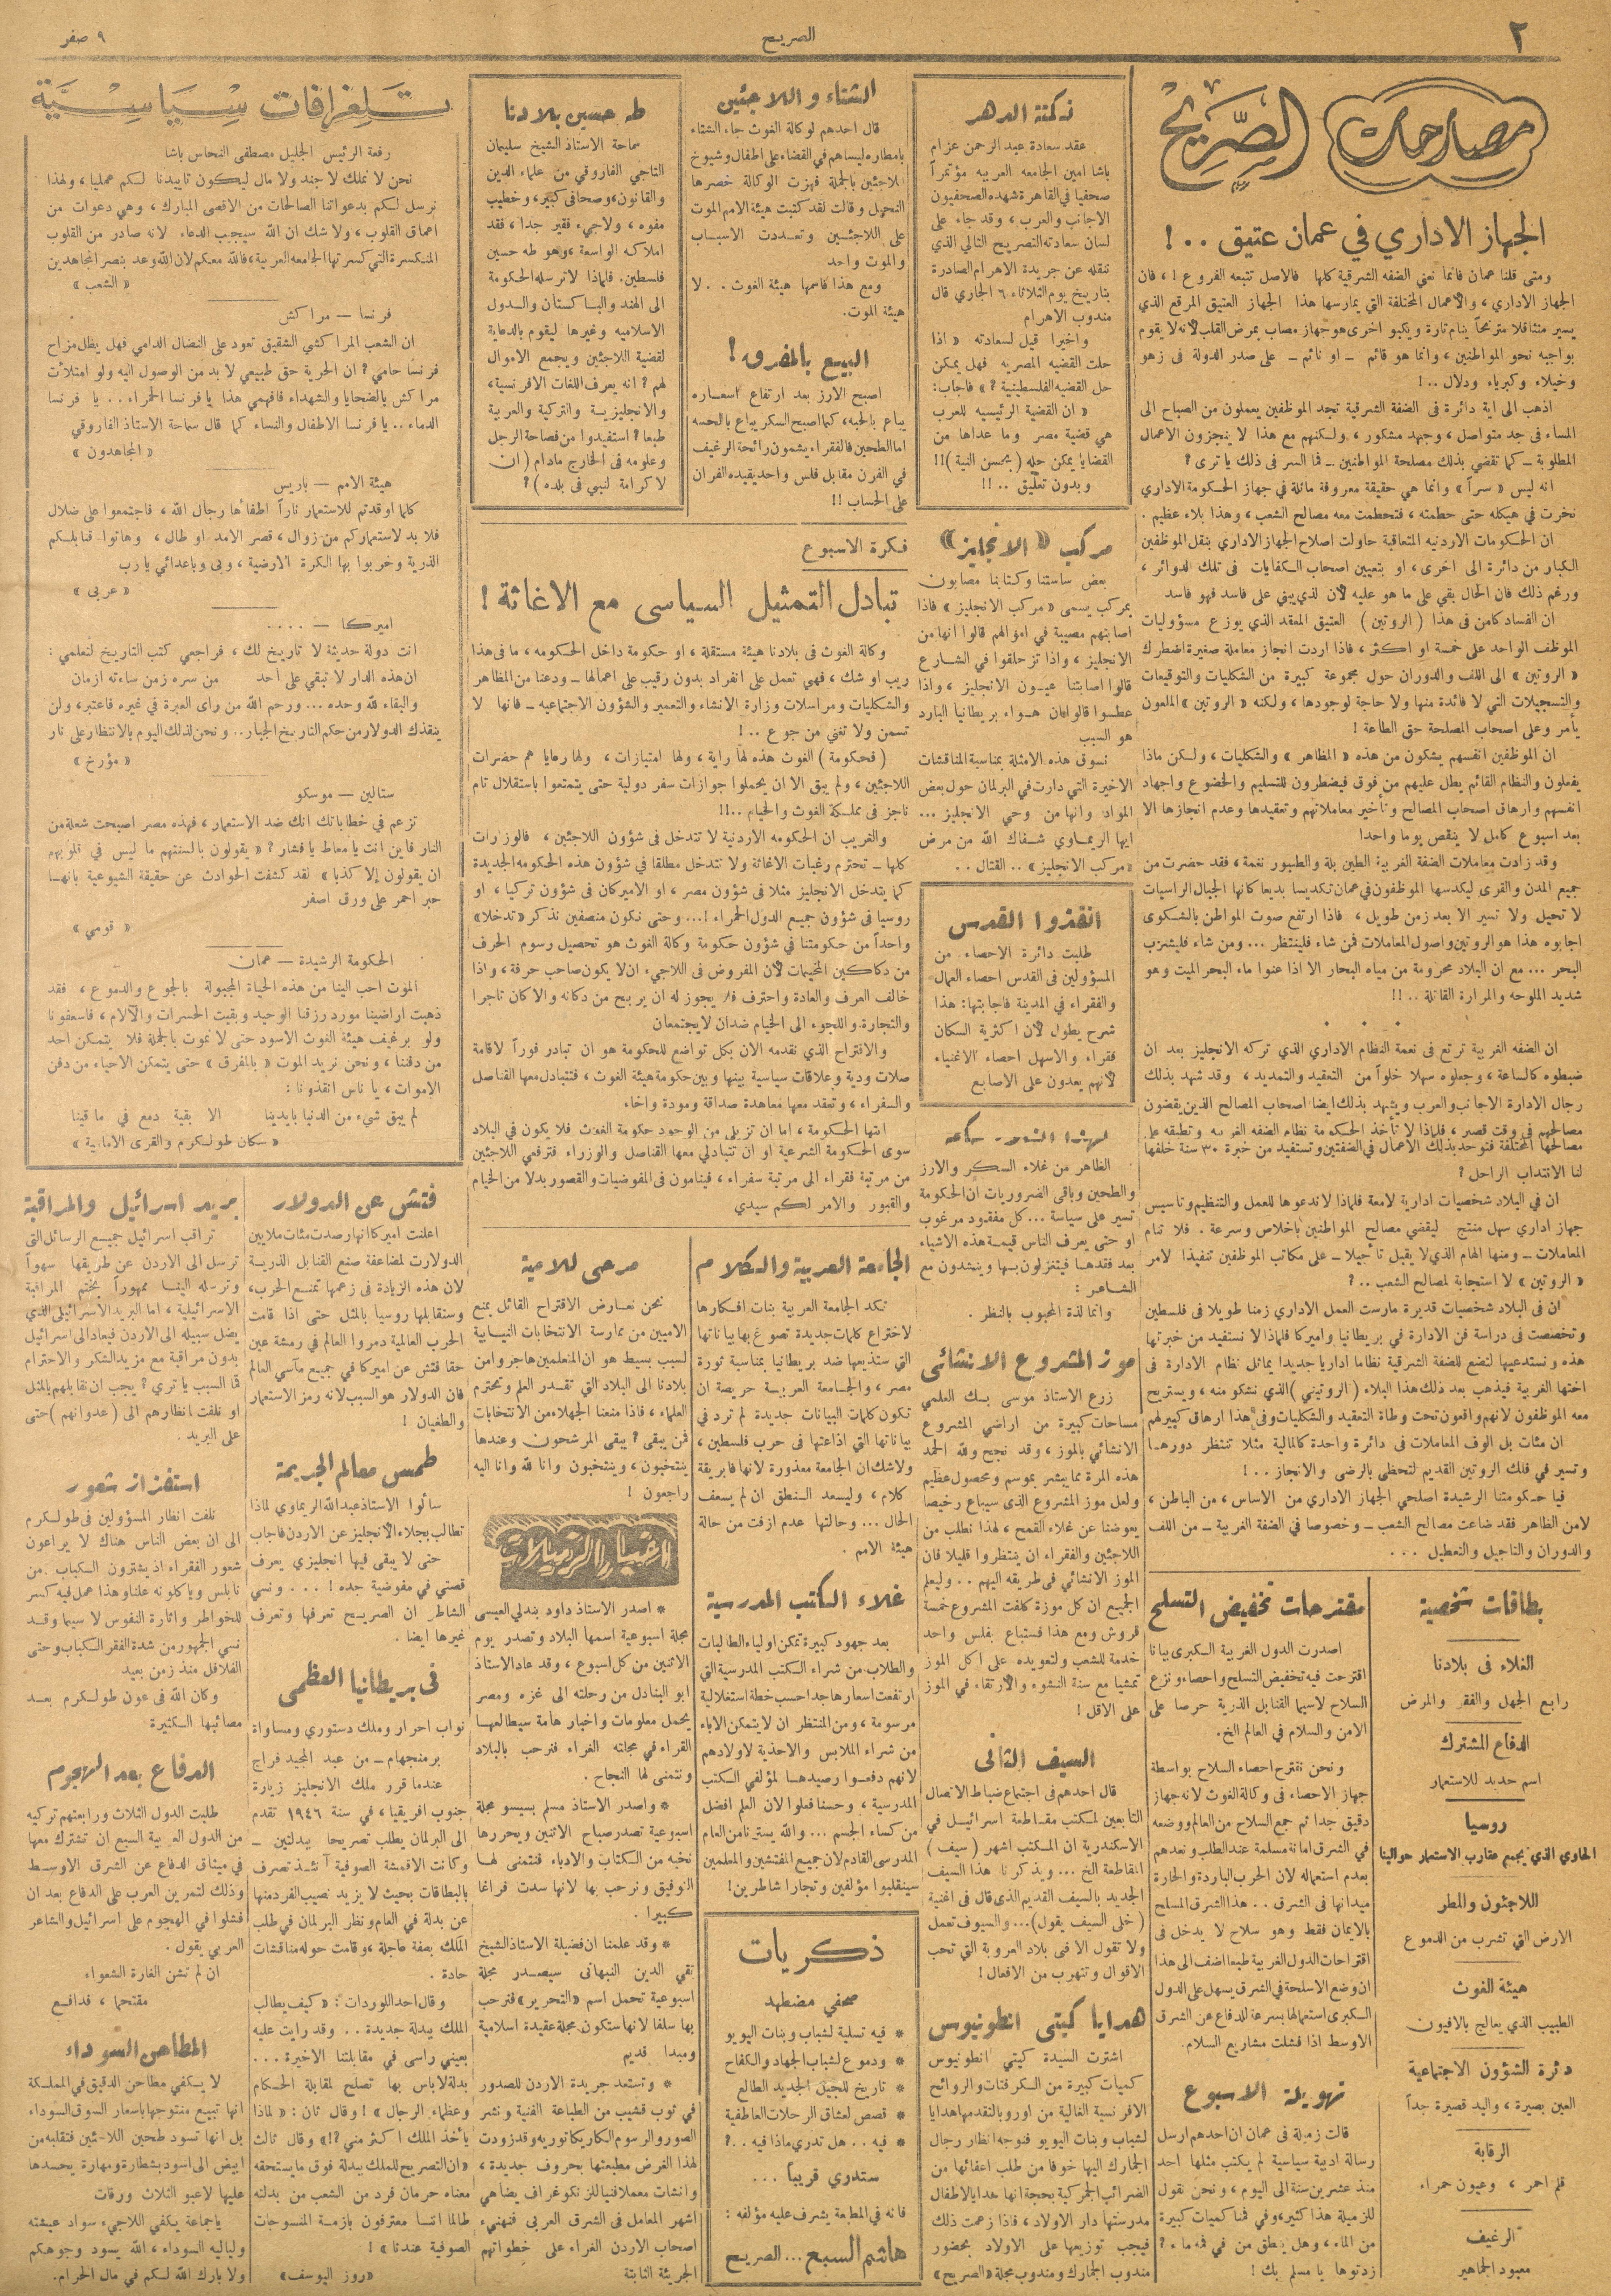 ٢
الصريح
٩ صفر
مصارحات الصريح
الجهاز الاداري في عمان عتيق . . !
ومتى قلنا عمان فانما نعني الضفه الشرقية كلها فالاصل تتبعه الفروع ! ، فان
الجهاز الاداري ، والاعمال المختلفة التي يمارسها هذا الجهاز العتيق المرقع الذي
يسير متثاقلا مترنحاً ينام تارة ويكبو اخرى هو جهاز مصاب بمرض القلب لانه لا يقوم
بواجبه نحو المواطنين ، وانما هو قائم ــ او نائم ــ على صدر الدولة في زهو
وخيلاء وكبرياء ودلال . . !
اذهب الى اية دائرة في الضفة الشرقية تجد الموظفين يعملون من الصباح الى
المساء في جد متواصل ، وجهد مشكور ، ولكنهم مع هذا لا ينجزون الاعمال
المطلوبة ــ كما تقضي بذلك مصلحة المواطنين ــ فما السر في ذلك يا ترى ؟
انه ليس « سراً » وانما هي حقيقة معروفة ماثلة في جهاز الحكومة الاداري
نخرت في هيكله حتى حطمته ، فتحطمت معه مصالح الشعب ، وهذا بلاء عظيم .
ان الحكومات الاردنيه المتعاقبة حاولت اصلاح الجهاز الاداري بنقل الموظفين
الكبار من دائرة الى اخرى ، او بتعيين اصحاب الكفايات في تلك الدوائر ،
ورغم ذلك فان الحال بقي على ما هو عليه لأن الذي يبني على فاسد فهو فاسد
ان الفساد كامن في هذا ( الروتين ) العتيق المعقد الذي يوزع مسؤوليات
الموظف الواحد على خمسة او اكثر ، فاذا اردت انجاز معاملة صغيرة اضطرك
« الروتين » الى اللف والدوران حول مجموعة كبيرة من الشكليات والتوقيعات
والتسجيلات التي لا فائدة منها ولا حاجة لوجودها ، ولكنه « الروتين » الملعون
يأمر وعلى اصحاب المصلحة حق الطاعة !
ان الموظفين انفسهم يشكون من هذه « المظاهر » والشكليات ، ولكن ماذا
يفعلون والنظام القائم يطل عليهم من فوق فيضطرون للتسليم والخضوع واجهاد
انفسهم وارهاق اصحاب المصالح وتأخير معاملاتهم وتعقيدها وعدم انجازها الا
بعد اسبوع كامل لا ينقص يوما واحدا
وقد زادت معاملات الضفة الغربية الطين بلة والطنبور نغمة ، فقد حضرت من
جميع المدن والقرى ليكدسها الموظفون في عمان تكديسا بديعا كانها الجبال الراسيات
لا تحيل ولا تسير الا بعد زمن طويل ، فاذا ارتفع صوت المواطن بالشكوى
اجابوه هذا هو الروتين واصول المعاملات فمن شاء فلينتظر ... ومن شاء فليشرب
البحر ... مع ان البلاد محرومة من مياه البحار الا اذا عنوا ماء البحر الميت وهو
شديد الملوحه والمرارة القاتلة . . !!
ان الضفه الغربية ترتع في نعمة النظام الاداري الذي تركه الانجليز بعد ان
ضبطوه كالساعة ، وجعلوه سهلا خلواً من التعقيد والتمديد ، وقد شهد بذلك
رجال الادارة الاجانب والعرب ويشهد بذلك ايضا اصحاب المصالح الذين يقضون
مصالحهم في وقت قصير ، فلماذا لا تأخذ الحكومة نظام الضفه الغربيه وتطبقه على
مصالحها المختلفة فتوحد بذلك الاعمال في الضفتين وتستفيد من خبرة ٣٠ سنة خلفها
لنا الانتداب الراحل ؟
ان في البلاد شخصيات ادارية لامعة فلماذا لا ندعوها للعمل والتنظيم وتاسيس
جهاز اداري سهل منتج ليقضي مصالح المواطنين باخلاص وسرعة . فلا تنام
المعاملات ــ ومنها الهام الذي لا يقبل تأجيلا ــ على مكاتب الموظفين تنفيذا لامر
« الروتين » لا استجابة لمصالح الشعب . . ؟
ان في البلاد شخصيات قديرة مارست العمل الاداري زمنا طويلا في فلسطين
وتخصصت في دراسة فن الادارة في بريطانيا واميركا فلماذا لا نستفيد من خبرتها
هذه ونستدعيها لتضع للضفة الشرقية نظاما اداريا جديدا يماثل نظام الادارة في
اختها الغربية فيذهب بعد ذلك هذا البلاء ( الروتيني ) الذي نشكو منه ، ويستريح
معه الموظفون لانهم واقعون تحت وطأة التعقيد والشكليات وفي هذا ارهاق كبير لهم
ان مئات بل الوف المعاملات في دائرة واحدة كالمالية مثلا تنتظر دورها
وتسير في فلك الروتين القديم لتحظى بالرضى والانجاز . . !
فيا حكومتنا الرشيدة اصلحي الجهاز الاداري من الاساس ، من الباطن ،
لا من الظاهر فقد ضاعت مصالح الشعب ــ وخصوصا في الضفة الغربية ــ من اللف
والدوران والتاجيل والتعطيل . . .
نكتة الدهر
عقد سعادة عبد الرحمن عزام
باشا امين الجامعه العربيه مؤتمراً
صحفيا في القاهرة شهده الصحفيون
الاجانب والعرب ، وقد جاء على
لسان سعادته التصريح التالي الذي
ننقله عن جريدة الاهرام الصادرة
بتاريخ يوم الثلاثاء ٦ الجاري قال
مندوب الاهرام
واخيرا قيل لسعادته « اذا
حلت القضيه المصريه فهل يمكن
حل القضيه الفلسطينية ؟ » فاجاب :
« ان القضية الرئيسيه للعرب
هي قضية مصر وما عداها من
القضايا يمكن حله ( بحسن النية ) !!
وبدون تعليق . . !!
مركب « الانجليز »
بعض ساستنا وكتابنا مصابون
بمركب يسمى « مركب الانجليز » فاذا
اصابتهم مصيبة في اموالهم قالوا انها من
الانجليز ، واذا تزحلقوا في الشارع
قالوا اصابتنا عيون الانجليز ، واذا
عطسوا قالوا فان هواء بريطانيا البارد
هو السبب
نسوق هذه الامثلة بمناسبة المناقشات
الاخيرة التي دارت في البرلمان حول بعض
المواد وانها من وحي الانجليز ...
ايها الريماوي شفاك الله من مرض
« مركب الانجليز » . . القتال . .
انقذوا القدس
طلبت دائرة الاحصاء من
المسؤولين في القدس احصاء العمال
والفقراء في المدينة فاجابتها : هذا
شرح يطول لأن اكثرية السكان
فقراء والاسهل احصاء الاغنياء
لأنهم يعدون على الاصابع
الظاهر من غلاء السكر والارز
والطحين وباقي الضروريات ان الحكومة
تسير على سياسة ... كل مفقود مرغوب
او حتى يعرف الناس قيمة هذه الاشياء
بعد فقدها فيتغزلون بها وينشدون مع
الشاعر :
وانما لذة المحبوب بالنظر .
موز المشروع الانشائي
زرع الاستاذ موسى بك العلمي
مساحات كبيرة من اراضي المشروع
الانشائي بالموز ، وقد نجح ولله الحمد
هذه المرة مما يبشر بموسم ومحصول عظيم
ولعل موز المشروع الذي سيباع رخيصا
يعوضنا عن غلاء القمح ، لهذا نطلب من
اللاجئين والفقراء ان ينتظروا قليلا فان
الموز الانشائي في طريقه اليهم . . وليعلم
الجميع ان كل موزة كلفت المشروع خمسة
قروش ومع هذا فستباع بفلس واحد
خدمة للشعب ولتعويده على اكل الموز
تمشيا مع سنة النشوء والارتقاء في الموز
على الاقل !
السيف الثاني
قال احدهم في اجتماع ضباط الاتصال
التابعين لمكتب مقاطعة اسرائيل في
الاسكندرية ان المكتب اشهر ( سيف )
المقاطعة الخ ... ويذكرنا هذا السيف
الجديد بالسيف القديم الذي قال في اغنية
( خلي السيف يقول ) ... والسيوف تعمل
ولا تقول الا في بلاد العروبة التي تحب
الاقوال وتتهرب من الافعال !
هدايا كيتي انطونيوس
اشترت السيدة كيتي انطونيوس
كميات كبيرة من السكر فتات والروائح
الافرنسية الغالية من اوروبا لتقدمها هدايا
لشباب وبنات اليويو فتوجه انظار رجال
الجمارك اليها خوفا من طلب اعفائها من
الضرائب الجمركية بحجة انها هدايا لاطفال
مدرستها دار الاولاد ، فاذا زعمت ذلك
فيجب توزيعها على الاولاد بحضور
مندوب الجمارك ومندوب مجلة « الصريح »
الشتاء واللاجئين
قال احدهم لوكالة الغوث جاء الشتاء
بامطاره ليساهم في القضاء على اطفال وشيوخ
اللاجئين بالجملة فهزت الوكالة خصرها
النحيل وقالت لقد كتبت هيئة الامم الموت
على اللاجئين وتعددت الاسباب
والموت واحد
ومع هذا فاسمها هيئة الغوث . . لا
هيئة الموت .
البيع بالمفرق !
اصبح الارز بعد ارتفاع اسعاره
يباع بالحبه ، كما اصبح السكر يباع بالحسه
اما الطحين فالفقراء يشمون رائحة الرغيف
في الفرن مقابل فلس واحد يقيده الفران
على الحساب !!
طه حسين بلادنا
سماحة الاستاذ الشيخ سليمان
التاجي الفاروقي من علماء الدين
والقانون ، وصحافي كبير ، وخطيب
مفوه ، ولاجيء فقير جدا ، فقد
املاكه الواسعة ، وهو طه حسين
فلسطين . فلماذا لا ترسله الحكومة
الى الهند والباكستان والدول
الاسلاميه وغيرها ليقوم بالدعاية
لقضية اللاجئين ويجمع الاموال
لهم ؟ انه يعرف اللغات الافرنسية ،
والانجليزية والتركية والعربية
طبعا ؟ استفيدوا من فصاحة الرجل
وعلومه في الخارج مادام ( ان
لا كرامة لنبي في بلده ) ؟
فكرة الاسبوع
تبادل التمثيل السياسي مع الاغاثة !
وكالة الغوث في بلادنا هيئة مستقلة ، او حكومة داخل الحكومه ، ما في هذا
ريب او شك ، فهي تعمل على انفراد بدون رقيب على اعمالها ــ ودعنا من المظاهر
والشكليات ومراسلات وزارة الانشاء والتعمير والشؤون الاجتماعيه ــ فانها لا
تسمن ولا تغني من جوع . . !
( فحكومة ) الغوث هذه لها راية ، ولها امتيازات ، ولها رعايا هم حضرات
اللاجئين ، ولم يبق الا ان يحملوا جوازات سفر دولية حتى يتمتعوا باستقلال تام
ناجز في مملكة الغوث والخيام ..!!
والغريب ان الحكومه الاردنية لا تتدخل في شؤون اللاجئين ، فالوزارات
كلها ــ تحترم رغبات الاغاثة ولا تتدخل مطلقا في شؤون هذه الحكومه الجديدة
كما يتدخل الانجليز مثلا في شؤون مصر ، او الاميركان في شؤون تركيا ، او
روسيا في شؤون جميع الدول الحمراء ! ... وحتى نكون منصفين نذكر « تدخلا »
واحداً من حكومتنا في شؤون حكومة وكالة الغوث هو تحصيل رسوم الحرف
من دكاكين المخيمات لأن المفروض في اللاجيء ان لا يكون صاحب حرفة ، واذا
خالف العرف والعادة واحترف فلا يجوز له ان يربح من دكانه والا كان تاجرا
والتجارة واللجوء الى الخيام ضدان لا يجتمعان
والاقتراح الذي نقدمه الان بكل تواضع للحكومة هو ان تبادر فوراً لاقامة
صلات ودية وعلاقات سياسية بينها وبين حكومة هيئة الغوث ، فتتبادل معها القناصل
والسفراء ، وتعقد معها معاهدة صداقة ومودة واخاء
ايتها الحكومة ، اما ان تزيلي من الوجود حكومة الغوث فلا يكون في البلاد
سوى الحكومة الشرعية او ان تتبادلي معها القناصل والوزراء فترفعي اللاجئين
من مرتبة فقراء الى مرتبة سفراء ، فينامون في المفوضيات والقصور بدلا من الخيام
والقبور والامر لكم سيدي
الجامعة العربية والكلام
تكد الجامعة العربية بنات افكارها
لاختراع كلمات جديدة تصوغ بها بياناتها
التي ستذيعها ضد بريطانيا بمناسبة ثورة
مصر ، والجامعة العربية حريصة ان
تكون كلمات البيانات جديدة لم ترد في
بياناتها التي اذاعتها في حرب فلسطين ،
ولا شك ان الجامعة معذورة لانها فابريقة
كلام ، وليسعد النطق ان لم يسعف
الحال ... وحالتها عدم ازفت من حالة
هيئة الامم .
غلاء الكتب المدرسية
بعد جهود كبيرة تمكن اولياء الطالبات
والطلاب من شراء الكتب المدرسية التي
ارتفعت اسعارها جدا حسب خطة استغلالية
مرسومة ، ومن المنتظر ان لا يتمكن الاباء
من شراء الملابس والاحذية لاولادهم
لانهم دفعوا رصيدها لمؤلفي الكتب
المدرسية ، وحسنا فعلوا لان العلم افضل
من كساء الجسم ... والله يسترنا من العام
المدرسي القادم لان جميع المفتشين والمعلمين
سينقلبوا مؤلفين وتجارا شاطرين !
ذكريات
صحفي مضطهد
* فيه تسلية لشباب وبنات اليويو
* ودموع لشباب الجهاد والكفاح
* تاريخ للجيل الجديد الطالع
* قصص لعشاق الرحلات العاطفية
* فيه . . هل تدري ماذا فيه . . ؟
ستدري قريباً . . .
فانه في المطبعة يشرف عليه مؤلفه :
هاشم السبع ... الصريح
مرحى للامية
نحن نعارض الاقتراح القائل بمنع
الاميين من ممارسة الانتخابات النيابية
لسبب بسيط هو ان المتعلمين هاجروا من
بلادنا الى البلاد التي تقدر العلم وتحترم
العلماء ، فاذا منعنا الجهلاء من الانتخابات
فمن يبقى ؟ يبقى المرشحون وعندها
ينتخبون ، وينتخبون وانا لله وانا اليه
راجعون !
اخبار الزميلات
* اصدر الاستاذ داود بندلي العيسى
مجلة اسبوعية اسمها البلاد وتصدر يوم
الاثنين من كل اسبوع ، وقد عاد الاستاذ
ابو البنادل من رحلته الى غزه ومصر
يحمل معلومات واخبار هامة سيطالعها
القراء في مجلته الغراء فنرحب بالبلاد
ونتمنى لها النجاح .
* واصدر الاستاذ مسلم بسيسو مجلة
اسبوعية تصدر صباح الاثنين ويحررها
نخبه من الكتاب والادباء فنتمنى لها
التوفيق ونرحب بها لانها سدت فراغا
كبيرا .
* وقد علمنا ان فضيلة الاستاذ الشيخ
تقي الدين النبهاني سيصدر مجلة
اسبوعية تحمل اسم « التحرير » فنرحب
بها سلفا لانها ستكون مجلة عقيدة اسلامية
ومبدا قديم
* وتستعد جريدة الاردن للصدور
في ثوب قشيب من الطباعة الفنية ونشر
الصور والرسوم الكاريكاتوريه وقد زودت
لهذا الغرض مطبعتها بحروف جديدة ،
وانشات معملا فنيا للزنكوغراف يضاهي
اشهر المعامل في الشرق العربي فنهنيء
اصحاب الاردن الغراء على خطواتهم
الجريئة الثابتة
تلغرافات سياسية
رفعة الرئيس الجليل مصطفى النحاس باشا
نحن لا نملك لا جند ولا مال ليكون تاييدنا لكم عمليا ، ولهذا
نرسل لكم بدعواتنا الصالحات من الاقصى المبارك ، وهي دعوات من
اعماق القلوب ، ولا شك ان الله سيجيب الدعاء لانه صادر من القلوب
المنكسرة التي كسرتها الجامعه العربية ، فالله معكم لان الله وعد بنصر المجاهدين
« الشعب »
فرنسا — مراكش
ان الشعب المراكشي الشقيق تعود على النضال الدامي فهل يظل مزاح
فرنسا حامي ؟ ان الحرية حق طبيعي لا بد من الوصول اليه ولو امتلأت
مراكش بالضحايا والشهداء فافهمي هذا يا فرنسا الحمراء . . يا فرنسا
الدماء . . يا فرنسا الاطفال والنساء كما قال سماحة الاستاذ الفاروقي
« المجاهدون »
هيئة الامم — باريس
كلما اوقدتم للاستعمار ناراً اطفأها رجال الله ، فاجتمعوا على ضلال
فلا بد لاستعماركم من زوال ، قصر الامد او طال ، وهاتوا قنابلكم
الذرية وخربوا بها الكرة الارضية ، وبي وباعدائي يا رب
« عربي »
اميركا — . . . .
انت دولة حديثة لا تاريخ لك ، فراجعي كتب التاريخ لتعلمي :
ان هذه الدار لا تبقي على احد من سره زمن ساءته ازمان
والبقاء لله وحده ... ورحم الله من راى العبرة في غيره فاعتبر ، ولن
ينقذك الدولار من حكم التاريخ الجبار . . ونحن لذلك اليوم بالانتظار على نار
« مؤرخ »
ستالين — موسكو
تزعم في خطاباتك انك ضد الاستعمار ، فهذه مصر اصبحت شعلة من
النار فاين انت يا معاط يا فشار ؟ « يقولون بالسنتهم ما ليس في قلوبهم
ان يقولون إلا كذبا » لقد كشفت الحوادث عن حقيقة الشيوعية بانها
حبر احمر على ورق اصفر
« قومي »
الحكومة الرشيدة — عمان
الموت احب الينا من هذه الحياة المجبولة بالجوع والدموع ، فقد
ذهبت اراضينا مورد رزقنا الوحيد وبقيت الحسرات والآلام ، فاسعفونا
ولو برغيف هيئة الغوث الاسود حتى لا نموت بالجملة فلا يتمكن احد
من دفننا ، ونحن نريد الموت « بالمفرق » حتى يتمكن الاحياء من دفن
الاموات ، يا ناس انقذونا :
لم يبق شيء من الدنيا بايدينا الا بقية دمع في ماقينا
« سكان طولكرم والقرى الامامية »
فتش عن الدولار
اعلنت اميركا انها رصدت مئات ملايين
الدولارات لمضاعفة صنع القنابل الذرية
لان هذه الزيادة في زعمها تمنع الحرب ،
وستقابلها روسيا بالمثل حتى اذا قامت
الحرب العالمية دمروا العالم في رمشة عين
حقا فتش عن اميركا في جميع مآسي العالم
فان الدولار هو السبب لانه رمز الاستعمار
والطغيان !
طمس معالم الجريمة
سألوا الاستاذ عبدالله الريماوي لماذا
تطالب بجلاء الانجليز عن الاردن فاجاب
حتى لا يبقى فيها انجليزي يعرف
قصتي في مفوضية جده ! . . . ونسي
الشاطر ان الصريح تعرفها وتعرف
غيرها ايضا .
في بريطانيا العظمى
نواب احرار وملك دستوري ومساواة
برمنجهام ــ من عبد المجيد فراج
عندما قرر ملك الانجليز زيارة
جنوب افريقيا ، في سنة ١٩٤٦ تقدم
الى البرلمان يطلب تصريحا ببدلتين ــ
وكانت الاقمشة الصوفية آنئذ تصرف
بالبطاقات بحيث لا يزيد نصيب الفرد منها
عن بدلة في العام ونظر البرلمان في طلب
الملك بصفة عاجلة ، وقامت حوله مناقشات
حادة .
وقال احد اللوردات : « كيف يطالب
الملك ببدلة جديدة . . وقد رايت عليه
بعيني راسي في مقابلتنا الاخيرة . . .
بدلة لاباس بها تصلح لمقابلة الحكام
وعظماء الرجال » ! وقال ثان : « لماذا
يأخذ الملك اكثر مني ؟! » وقال ثالث
« ان التصريح للملك ببدلة فوق ما يستحقه
معناه حرمان فرد من الشعب من بدلته
طالما اننا معترفون بازمة المنسوجات
الصوفية عندنا » !
« روز اليوسف »
بريد اسرائيل والمراقبة
تراقب اسرائيل جميع الرسائل التي
ترسل الى الاردن عن طريقها سهواً
وترسله الينا ممهوراً بختم المراقبة
الاسرائيلية ، اما البريد الاسرائيلي الذي
يضل سبيله الى الاردن فيعاد الى اسرائيل
بدون مراقبة مع مزيد الشكر والاحترام
فما السبب يا ترى ؟ يجب ان نقابلهم بالمثل
او نلفت انظارهم الى ( عدوانهم ) حتى
على البريد .
استفزاز شعور
نلفت انظار المسؤولين في طولكرم
الى ان بعض الناس هناك لا يراعون
شعور الفقراء اذ يشترون الكباب من
نابلس وياكلونه علنا وهذا عمل فيه كسر
للخواطر واثارة النفوس لا سيما وقد
نسي الجمهور من شدة الفقر الكباب وحتى
الفلافل منذ زمن بعيد
وكان الله في عون طولكرم بعد
مصائبها الكثيرة
الدفاع بعد الهجوم
طلبت الدول الثلاث ورابعتهم تركيه
من الدول العربية السبع ان تشترك معها
في ميثاق الدفاع عن الشرق الاوسط
وذلك لتمرين العرب على الدفاع بعد ان
فشلوا في الهجوم على اسرائيل والشاعر
العربي يقول .
ان لم تشن الغارة الشعواء
مقتحما ، فدافع
المطاحن السوداء
لا يكفي مطاحن الدقيق في المملكة
انها تبيع منتوجها باسعار السوق السوداء
بل انها تسود طحين اللاجئين فتقلبه من
ابيض الى اسود بشطارة ومهارة يحسدها
عليها لاعبو الثلاث ورقات
ياجماعة يكفي اللاجيء سواد عيشته
ولياليه السوداء ، الله يسود وجوهكم
ولا بارك الله لكم في مال الحرام .
مقترحات تخفيض التسلح
اصدرت الدول الغربية الكبرى بيانا
اقترحت فيه تخفيض التسلح واحصاء ونزع
السلاح لاسيما القنابل الذرية حرصا على
الامن والسلام في العالم الخ .
ونحن نقترح احصاء السلاح بواسطة
جهاز الاحصاء في وكالة الغوث لانه جهاز
دقيق جدا ثم جمع السلاح من العالم ووضعه
في الشرق امانة مسلمة عند الطلب ونعدهم
بعدم استعماله لان الحرب الباردة والحارة
ميدانها في الشرق . . هذا الشرق المسلح
بالايمان فقط وهو سلاح لا يدخل في
اقتراحات الدول الغربية طبعا اضف الى هذا
ان وضع الاسلحة في الشرق يسهل على الدول
الكبرى استعمالها بسرعة للدفاع عن الشرق
الاوسط اذا فشلت مشاريع السلام .
تهويلة الاسبوع
قالت زميلة في عمان ان احدهم ارسل
رسالة ادبية سياسية لم يكتب مثلها احد
منذ عشرين سنة الى اليوم ، ونحن نقول
للزميلة هذا كثير ، وفي فمنا كميات كبيرة
من الماء ، وهل ينطق من في فمه ماء ؟
زدتوها يا مسلم بك !
بطاقات شخصية
الغلاء في بلادنا
رابع الجهل والفقر والمرض
الدفاع المشترك
اسم جديد للاستعمار
روسيا
الحاوي الذي يجمع عقارب الاستعمار حوالينا
اللاجئون والمطر
الارض التي تشرب من الدموع
هيئة الغوث
الطبيب الذي يعالج بالافيون
دائرة الشؤون الاجتماعية
العين بصيرة ، واليد قصيرة جداً
الرقابة
قلم احمر ، وعيون حمراء
الرغيف
معبود الجماهير